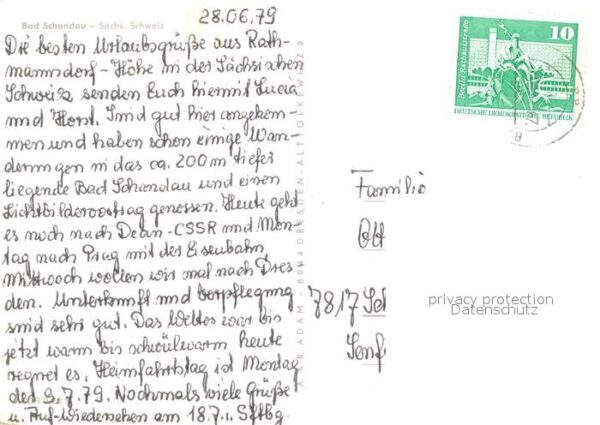 28.06.79
Bad Schandau – Sächs. Schweiz
Die besten Urlaubsgrüße aus Rath-
mannsdorf-Höhe in der Sächsischen
Schweiz senden Euch hiermit Lucia
und Horst. Sind gut hier angekom-
men und haben schon einige Wan-
derungen in das ca. 200 m tiefer
liegende Bad Schandau und einen
Lichtbildervortrag genossen. Heute geht
es noch nach -CSSR und Mon-
tag nach Prag mit der Eisenbahn
Mittwoch wollen wir mal nach Dres
den. Unterkunft und Verpflegung
sind sehr gut. Das Wetter war bis
jetzt warm bis schwülwarm heute
regnet es, Heimfahrtstag ist Montag
der 9.7.79. Nochmals viele Grüße
u. Auf-Wiedersehen am 18.7. i. Sftbg.
A. & R. ADAM - 8044 DRESDEN-ALTTOLKEWITZ 9
10
Berlin-Rathausstraße
DEUTSCHE DEMOKRATISCHE REPUBLIK
Familie
Ott
7817 Sch
Senf
privacy protection
Datenschutz